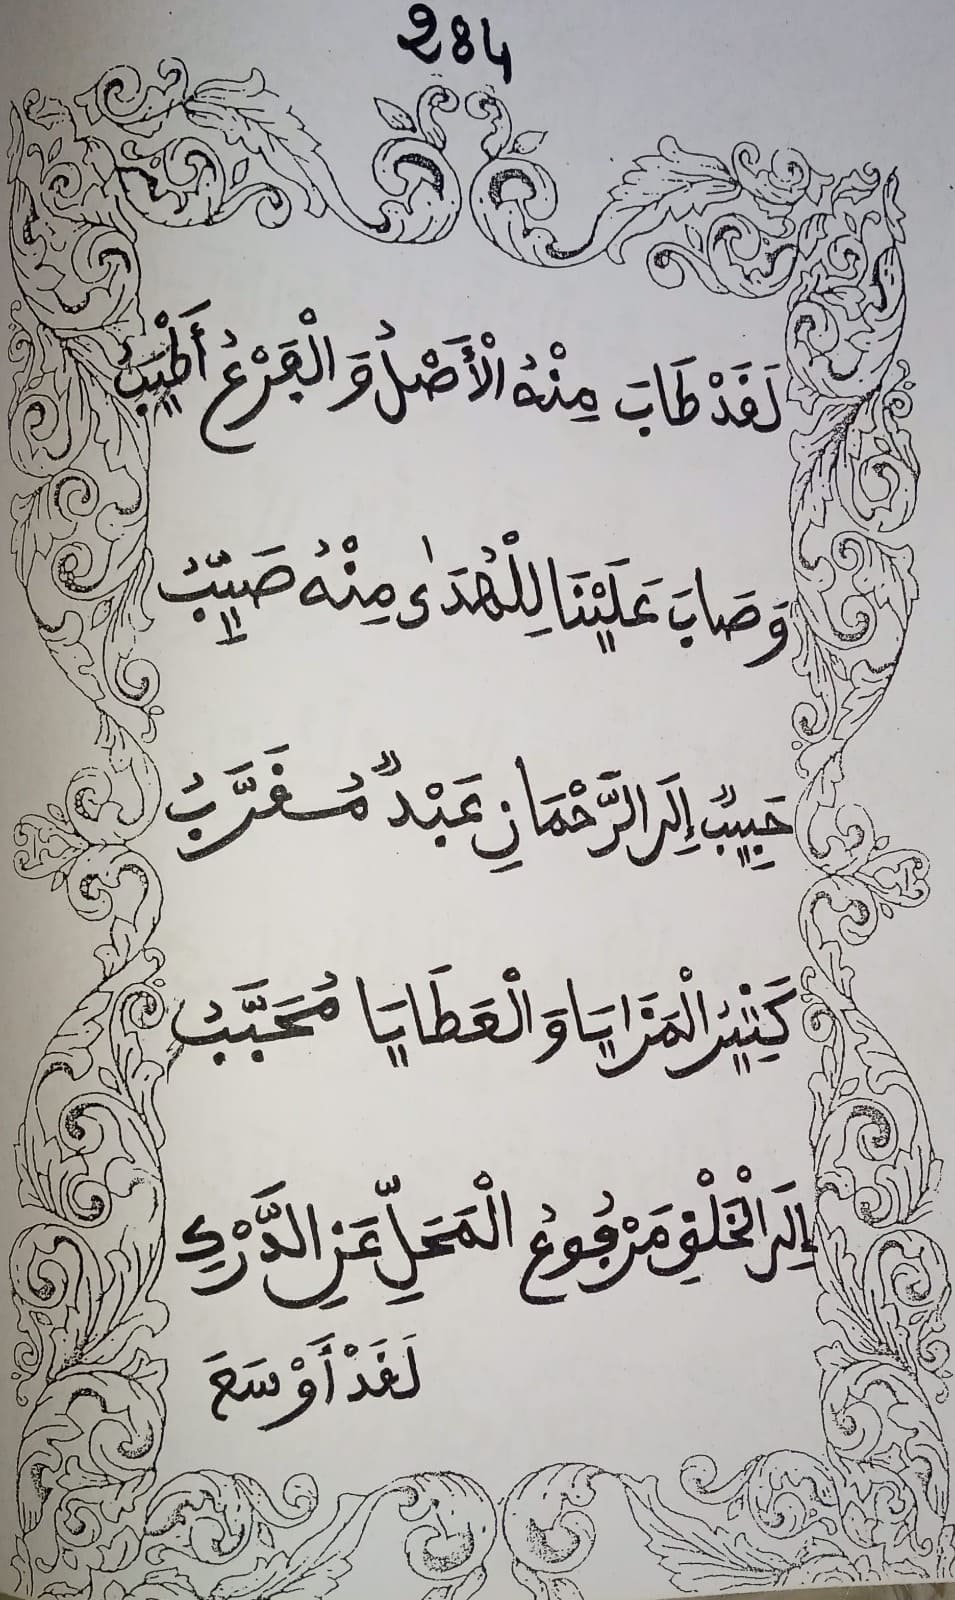 284
لَقَدْ طَابَ مِنْهُ الْأَصْلُ وَالْفَرْعُ أَطْيَبُ
وَصَابَ عَلَيْنَا لِلْهُدَىٰ مِنْهُ صَيِّبُ
حَبِيبٌ إِلَى الرَّحْمَانِ عَبْدٌ مُقَرَّبُ
كَثِيرُ الْمَزَايَا وَالْعَطَايَا مُحَبَّبُ
إِلَى الْخَلْقِ مَرْفُوعُ الْمَحَلِّ عَنِ الدَّرْكِ
لَقَدْ أَوْسَعَ